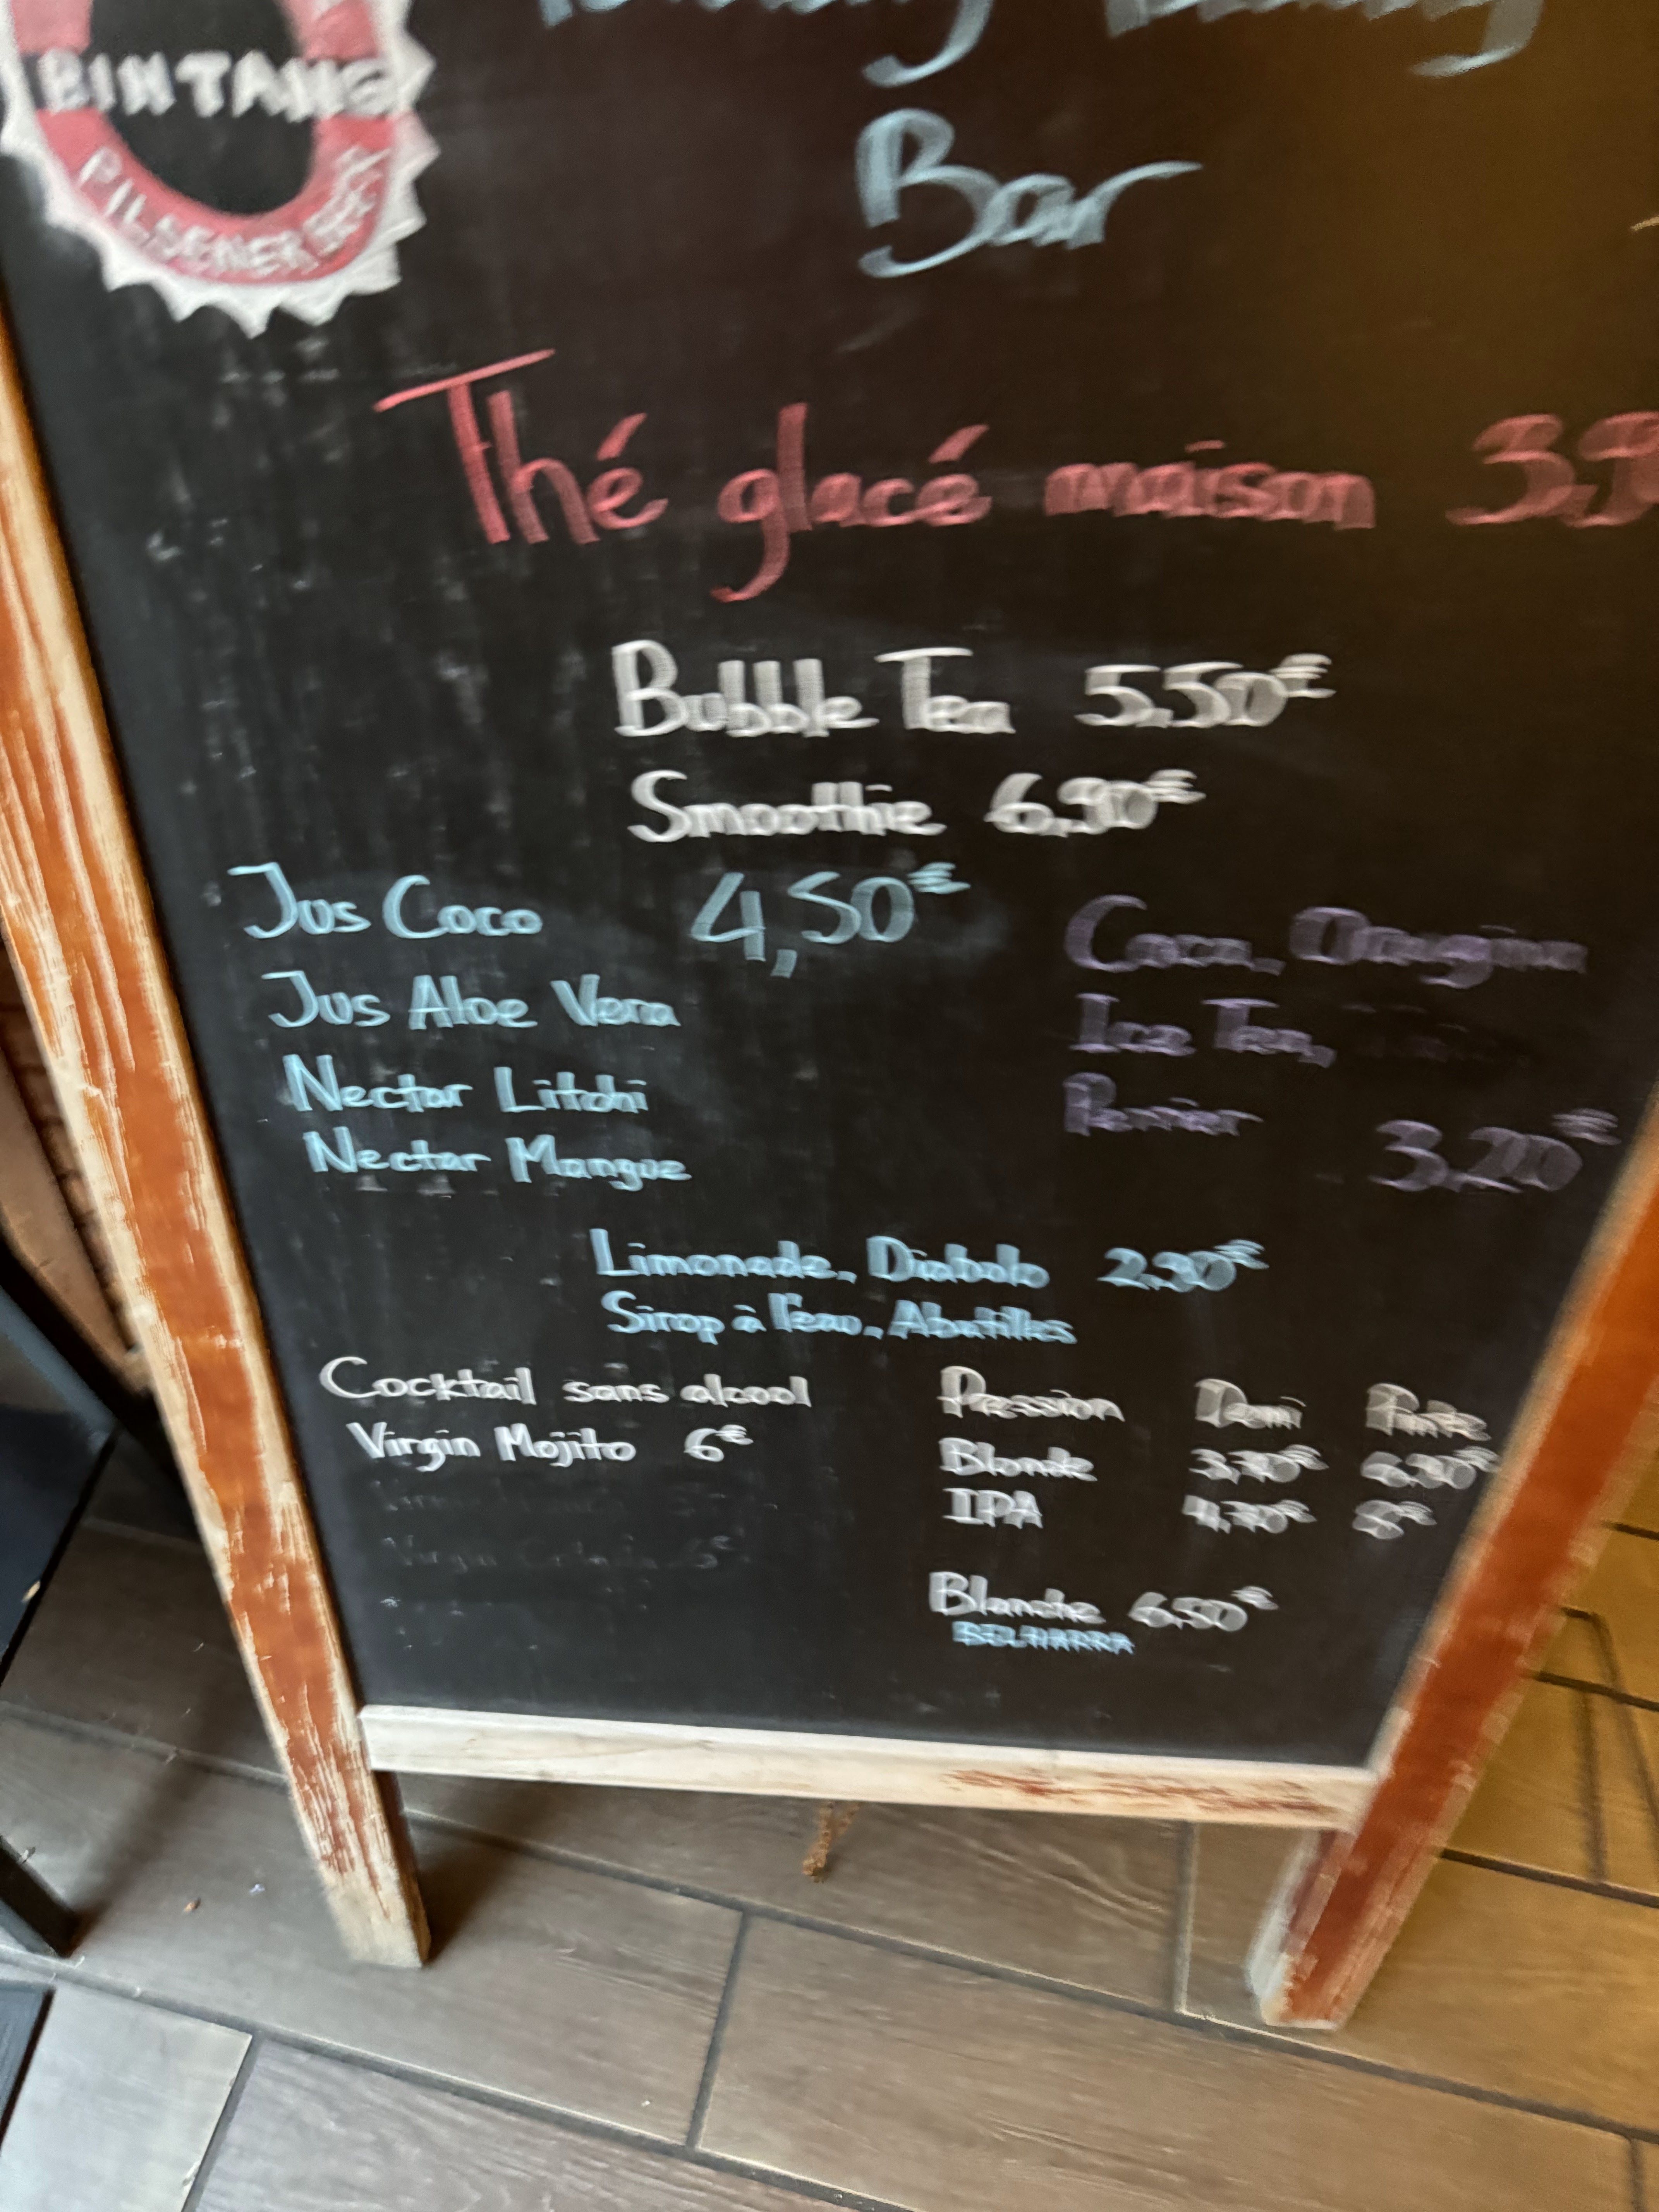 BINTANG
PILSENER BEER
Bar
Thé glacé maison
Bubble Tea 5,50€
Smoothie 6,90€
Jus Coco 4,50€
Jus Aloe Vera
Nectar Litchi
Nectar Mangue
Coca, Orangina
Ice Tea,
Perrier
3,20€
Limonade, Diabolo 2,90€
Sirop à l'eau, Abatilles
Cocktail sans alcool
Virgin Mojito 6€
Pression Demi Pinte
Blonde
IPA 8€
Blanche 6,50€
BELHARRA